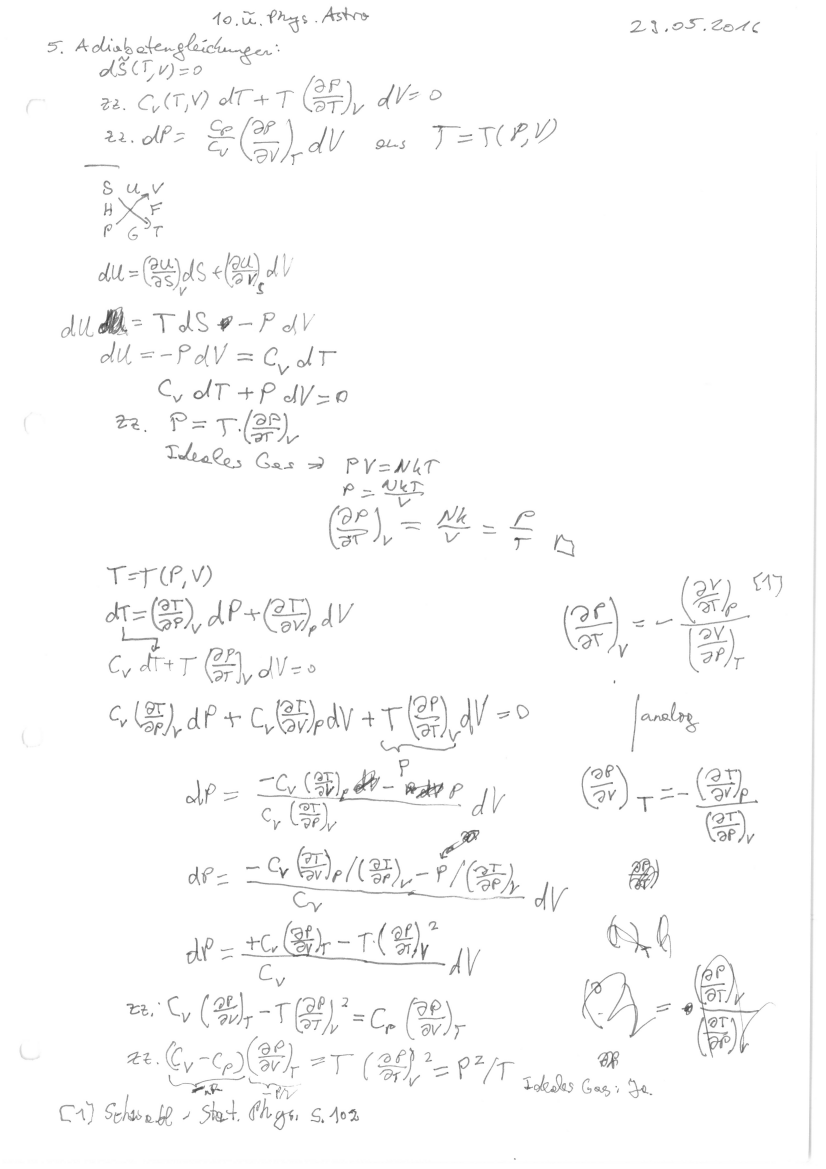 10. Ü. Phys. Astro
29.05.2016
5. Adiabatengleichungen:
dS̃(T,V)=0
zz. C_V(T,V) dT + T (∂P/∂T)_V dV = 0
zz. dP = C_P/C_V (∂P/∂V)_T dV aus T=T(P,V)
S U V
H F
P G T
dU = (∂U/∂S)_V dS + (∂U/∂V)_S dV
dU = T dS - P dV
dU = -P dV = C_V dT
C_V dT + P dV = 0
zz. P = T·(∂P/∂T)_V
Ideales Gas ⇒ PV = NkT
P = NkT/V
(∂P/∂T)_V = Nk/V = P/T □
T=T(P,V)
dT = (∂T/∂P)_V dP + (∂T/∂V)_P dV
(∂P/∂T)_V = - (∂V/∂T)_P / (∂V/∂P)_T [1]
C_V dT + T (∂P/∂T)_V dV = 0
C_V (∂T/∂P)_V dP + C_V (∂T/∂V)_P dV + T (∂P/∂T)_V dV = 0
P
analog
dP = (-C_V (∂T/∂V)_P - P) / (C_V (∂T/∂P)_V) dV
(∂P/∂V)_T = - (∂T/∂V)_P / (∂T/∂P)_V
dP = (-C_V (∂T/∂V)_P / (∂T/∂P)_V - P / (∂T/∂P)_V) / C_V dV
dP = (+C_V (∂P/∂V)_T - T·(∂P/∂T)_V²) / C_V dV
zz. C_V (∂P/∂V)_T - T (∂P/∂T)_V² = C_P (∂P/∂V)_T
zz. (C_V - C_P) (∂P/∂V)_T = T (∂P/∂T)_V² = P²/T
Ideales Gas: Ja.
[1] Schwabl - Stat. Phys. S. 102